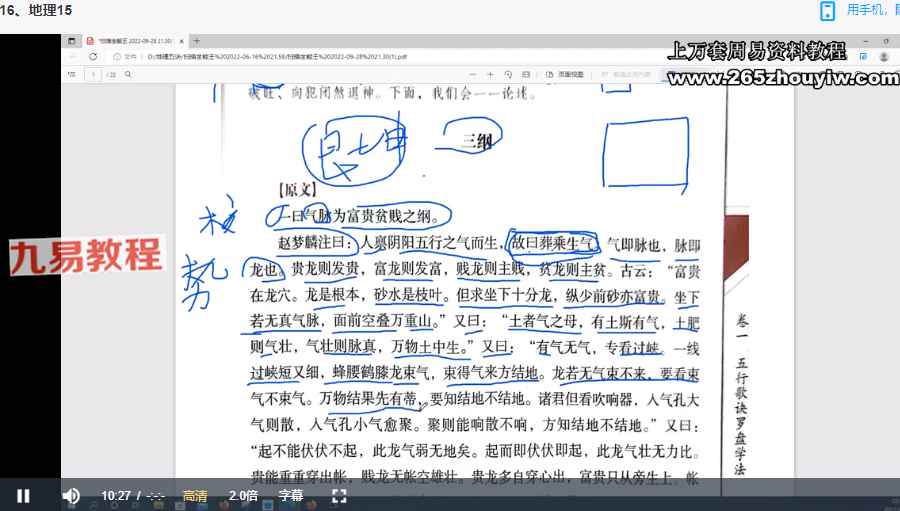 16、地理15
用手机，
上万套周易资料教程
www.265zhouyiw.com
向犯闭煞退神。下面，我们会一一论述。
三纲
【原文】
一曰气脉为富贵贫贱之纲。
赵梦麟注曰：人禀阴阳五行之气而生，故曰葬乘生气，气即脉也，脉即
龙也。贵龙则发贵，富龙则发富，贱龙则主贱，贫龙则主贫。古云：“富贵
在龙穴。龙是根本，砂水是枝叶。但求坐下十分龙，纵少前砂亦富贵。坐下
若无真气脉，面前空叠万重山。”又曰：“土者气之母，有土斯有气，土肥
则气壮，气壮则脉真，万物土中生。”又曰：“有气无气，专看过峡。一线
过峡短又细，蜂腰鹤膝龙束气，束得气来方结地。龙若无气束不来，要看束
气不束气。万物结果先有蒂，要知结地不结地。诸君但看吹响器，人气孔大
气则散，人气孔小气愈聚。聚则能响散不响，方知结地不结地。”又曰：
“起不能伏伏不起，此龙气弱无地矣。起而即伏伏即起，此龙气壮无力比。
贵能重重穿出帐，贱龙无帐空雄壮。贵龙多自穿心出，富贵只从旁生上。帐
卷一 五行歌诀罗盘学法
九易教程
势
10:27 / -:-:-
高清
2.0倍
字幕